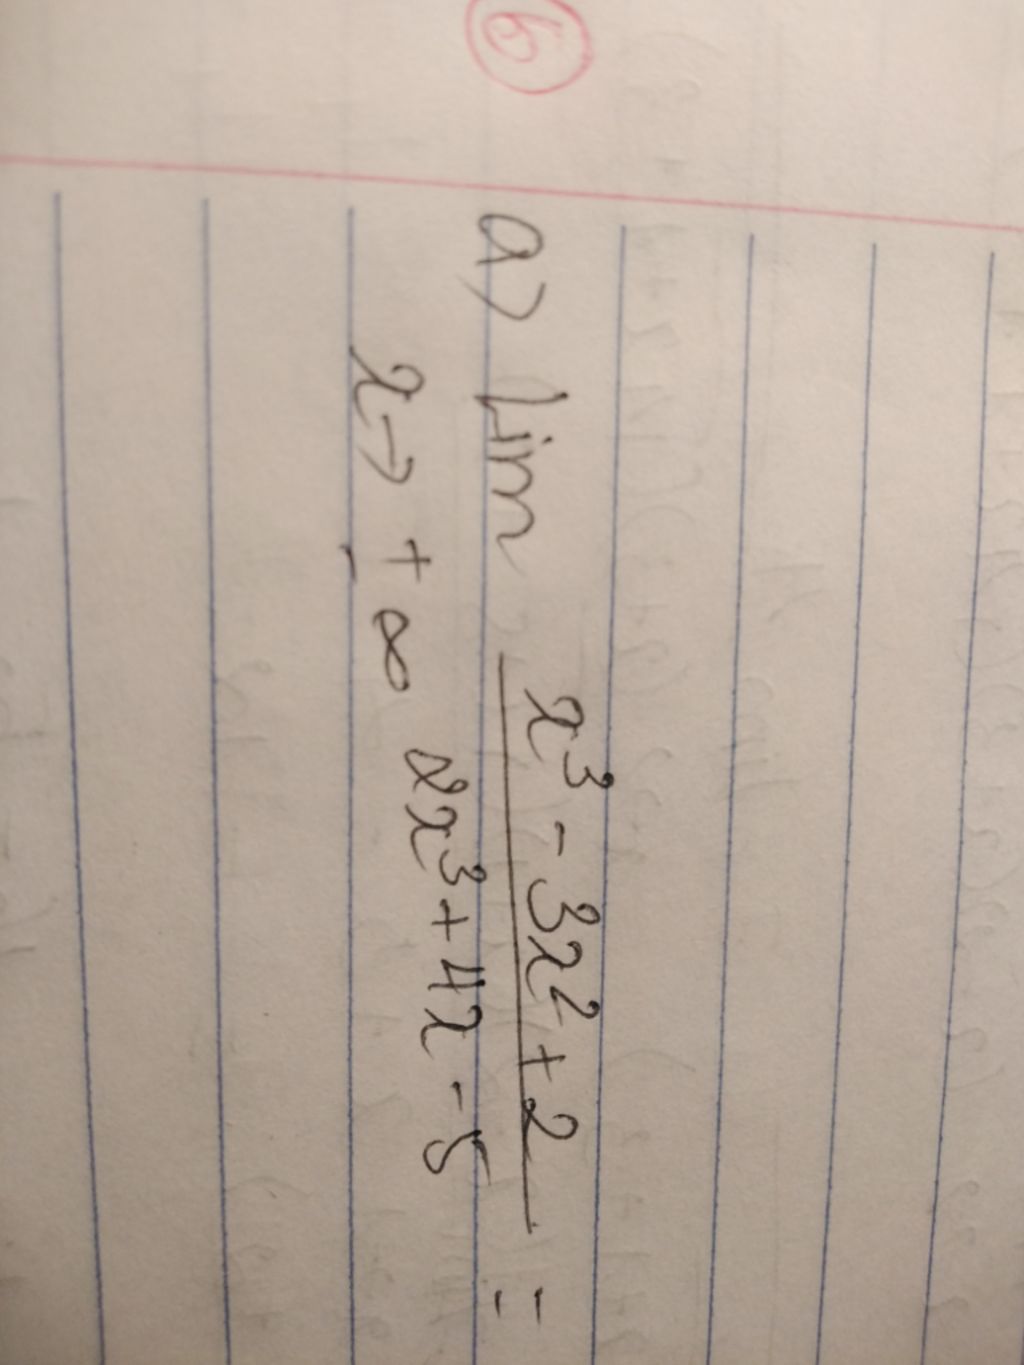 6
a) lim x³ - 3x² + 2 =
x → + ∞ 2x³ + 4x - 5